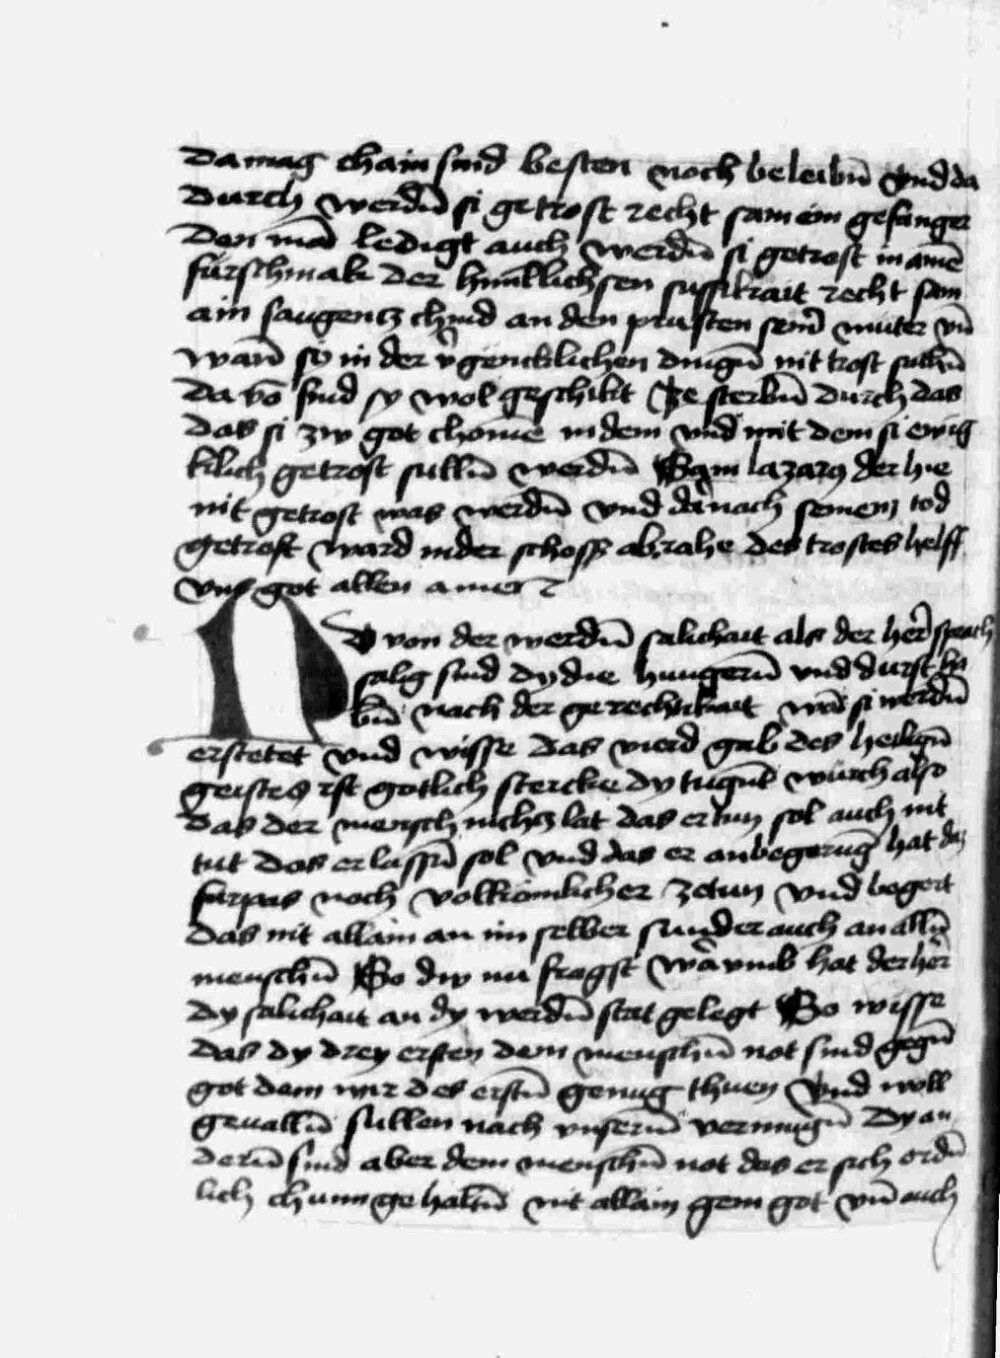 da mag chain sund besten noch beleibn̄ vnd da
durch werdn̄ si getrost recht sam ein gefanger
den mā ledigt auch werdn̄ si getrost in aine
fürschmakt der himllichsen sussikait recht sam
ain saugentz chind an den prusten seiner muter vn̄
wan̄ sy in der vgencklichen dingn̄ nit trost suchn̄
da vō sind sy wol geschikt ze sterbn̄ durch das
das si zw got chomē in dem vnd mit dem si ewig
klich getrost sulln̄ werdn̄ Sam lazarus der hie
nit getrost was werdn̄ vnd darnach seinem tod
getrost ward in der schoss abrahe des trostes helff
vns got allen amen
Nu von der werdn̄ salichait als der her sprach
salig sind dy die hungern̄ vnd durst ha
bn̄ nach der gerechtikait wan̄ si werdn̄
ersetet vnd wisse das vierd gab des heilign̄
geistes ist gotlich stercke dy tugnt würch also
das der mensch nichtz lat das er tun sol auch nit
tut das er lassn̄ sol vnd das er anbegerūg hat daz
furpas noch volkomlicher ze tun vnd begert
das nit allain an im selber sunder auch an alln̄
menschn̄ So dw nu fragst warumb hat der her
dy salichait an dy werdn̄ stat gelegt So wisse
das dy drey ersten dem menschn̄ not sind gegn̄
got dem wir des erstn̄ genug thuen vnd woll
geualln̄ sullen nach vnsern̄ vermugn̄ Dy an
dern̄ sind aber dem menschn̄ not das er sich ordn̄
lich chunn gehaltn̄ nit allain gem got vn̄ auch